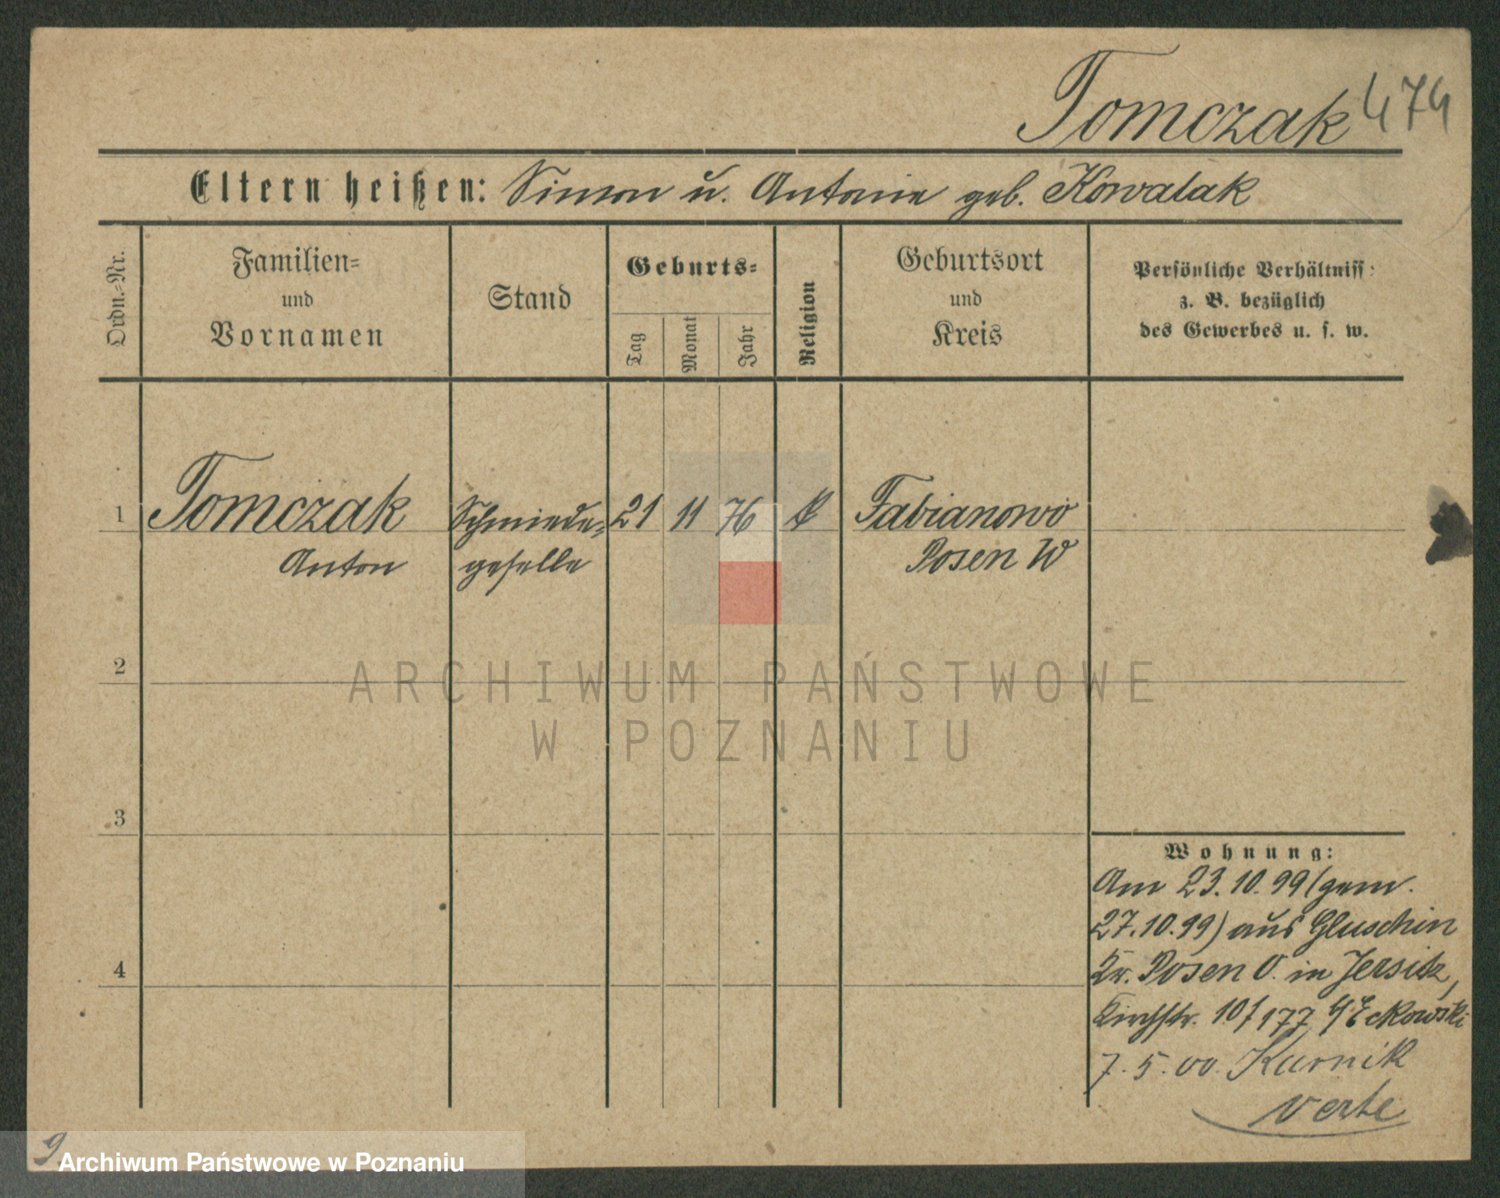 Tomczak 474
Eltern heißen: Simon u. Antonie geb. Kowalak
Ordn.-Nr.
Familien-
und
Vornamen
Stand
Geburts-
Tag
Monat
Jahr
Religion
Geburtsort
und
Kreis
Persönliche Verhältniss
z. B. bezüglich
des Gewerbes u. s. w.
1 Tomczak Schmiede- 21 11 76 Fabianowo
Anton geselle Posen W
2
3
4
Wohnung:
Am 23.10.99 (gem.
27.10.99) aus Gluschin
Kr. Posen O. in Jersitz,
Kirchstr. 10/177
7.5.00. Kurnik
verte
9
ARCHIWUM PAŃSTWOWE
W POZNANIU
Archiwum Państwowe w Poznaniu